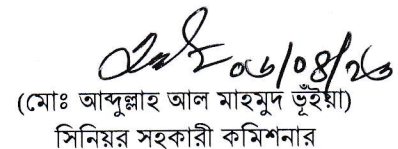 ০৬/০৪/২৩
(মোঃ আব্দুল্লাহ আল মাহমুদ ভূঁইয়া)
সিনিয়র সহকারী কমিশনার